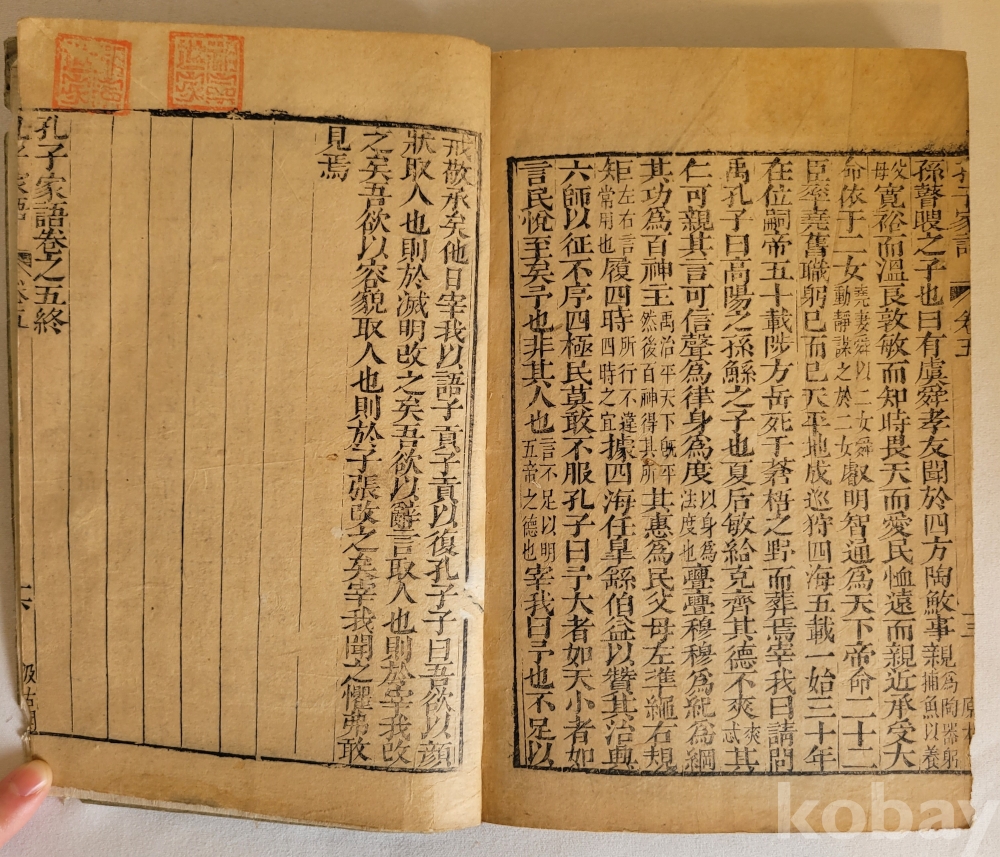 孔子家語 卷五 十三
孫瞽瞍之子也曰有虞舜孝友聞於四方陶敏事親為陶器躬捕魚以養
父母寬裕而溫良敦敏而知時畏天而愛民恤遠而親近承受大
命依于二女堯妻舜以二女舜動靜謀之於二女叡明智通為天下帝命二十二
臣率堯舊職躬已而已天平地成巡狩四海五載一始三十年
在位嗣帝五十載陟方岳死于蒼梧之野而葬焉宰我曰請問
禹孔子曰高陽之孫鯀之子也夏后敏給克齊其德不爽爽忒其
仁可親其言可信聲為律身為度以身為法度也亹亹穆穆為紀為綱
其功為百神主禹治平天下旣平然後百神得其所其惠為民父母左準繩右規
矩左右言知常用也履四時所行不違四時之宜據四海任臯繇伯益以贊其治興
六師以征不序四極民莫敢不服孔子曰予大者如天小者如
言民悅至矣予也非其人也言不足以明五帝之德也宰我曰予也不足以
戒敬承矣他日宰我以語子貢子貢以復孔子子曰吾欲以顏
狀取人也則於滅明改之矣吾欲以辭言取人也則於宰我改
之矣吾欲以容貌取人也則於子張改之矣宰我聞之懼弗敢
見焉
孔子家語卷之五終
孔子家語 卷五 十六 汲古閣
kobay